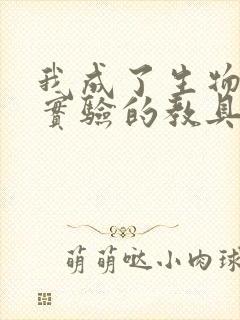 我成了生物
實驗的教具
萌萌哒小肉球